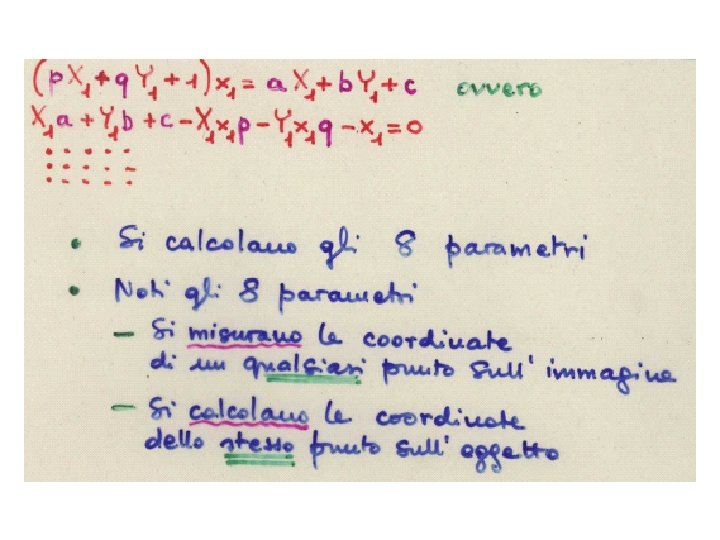 (pX₁+qY₁+1)x₁= aX₁+bY₁+c ovvero
X₁a+Y₁b+c-X₁x₁p-Y₁x₁q-x₁=0
• Si calcolano gli 8 parametri
• Noti gli 8 parametri
- Si misurano le coordinate
di un qualsiasi punto sull' immagine
- Si calcolano le coordinate
dello stesso punto sull' oggetto